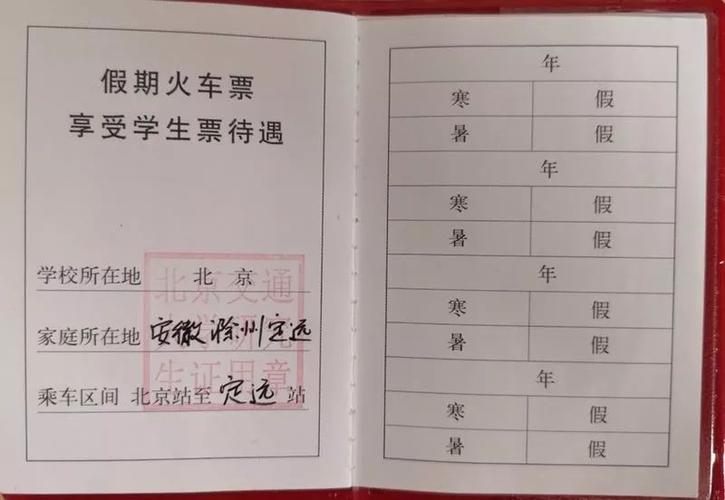 假期火车票
享受学生票待遇
学校所在地 北京
家庭所在地 安徽滁州定远
乘车区间 北京站至定远站
北京交通
大学研究
生证用章
年
寒 假
暑 假
年
寒 假
暑 假
年
寒 假
暑 假
年
寒 假
暑 假